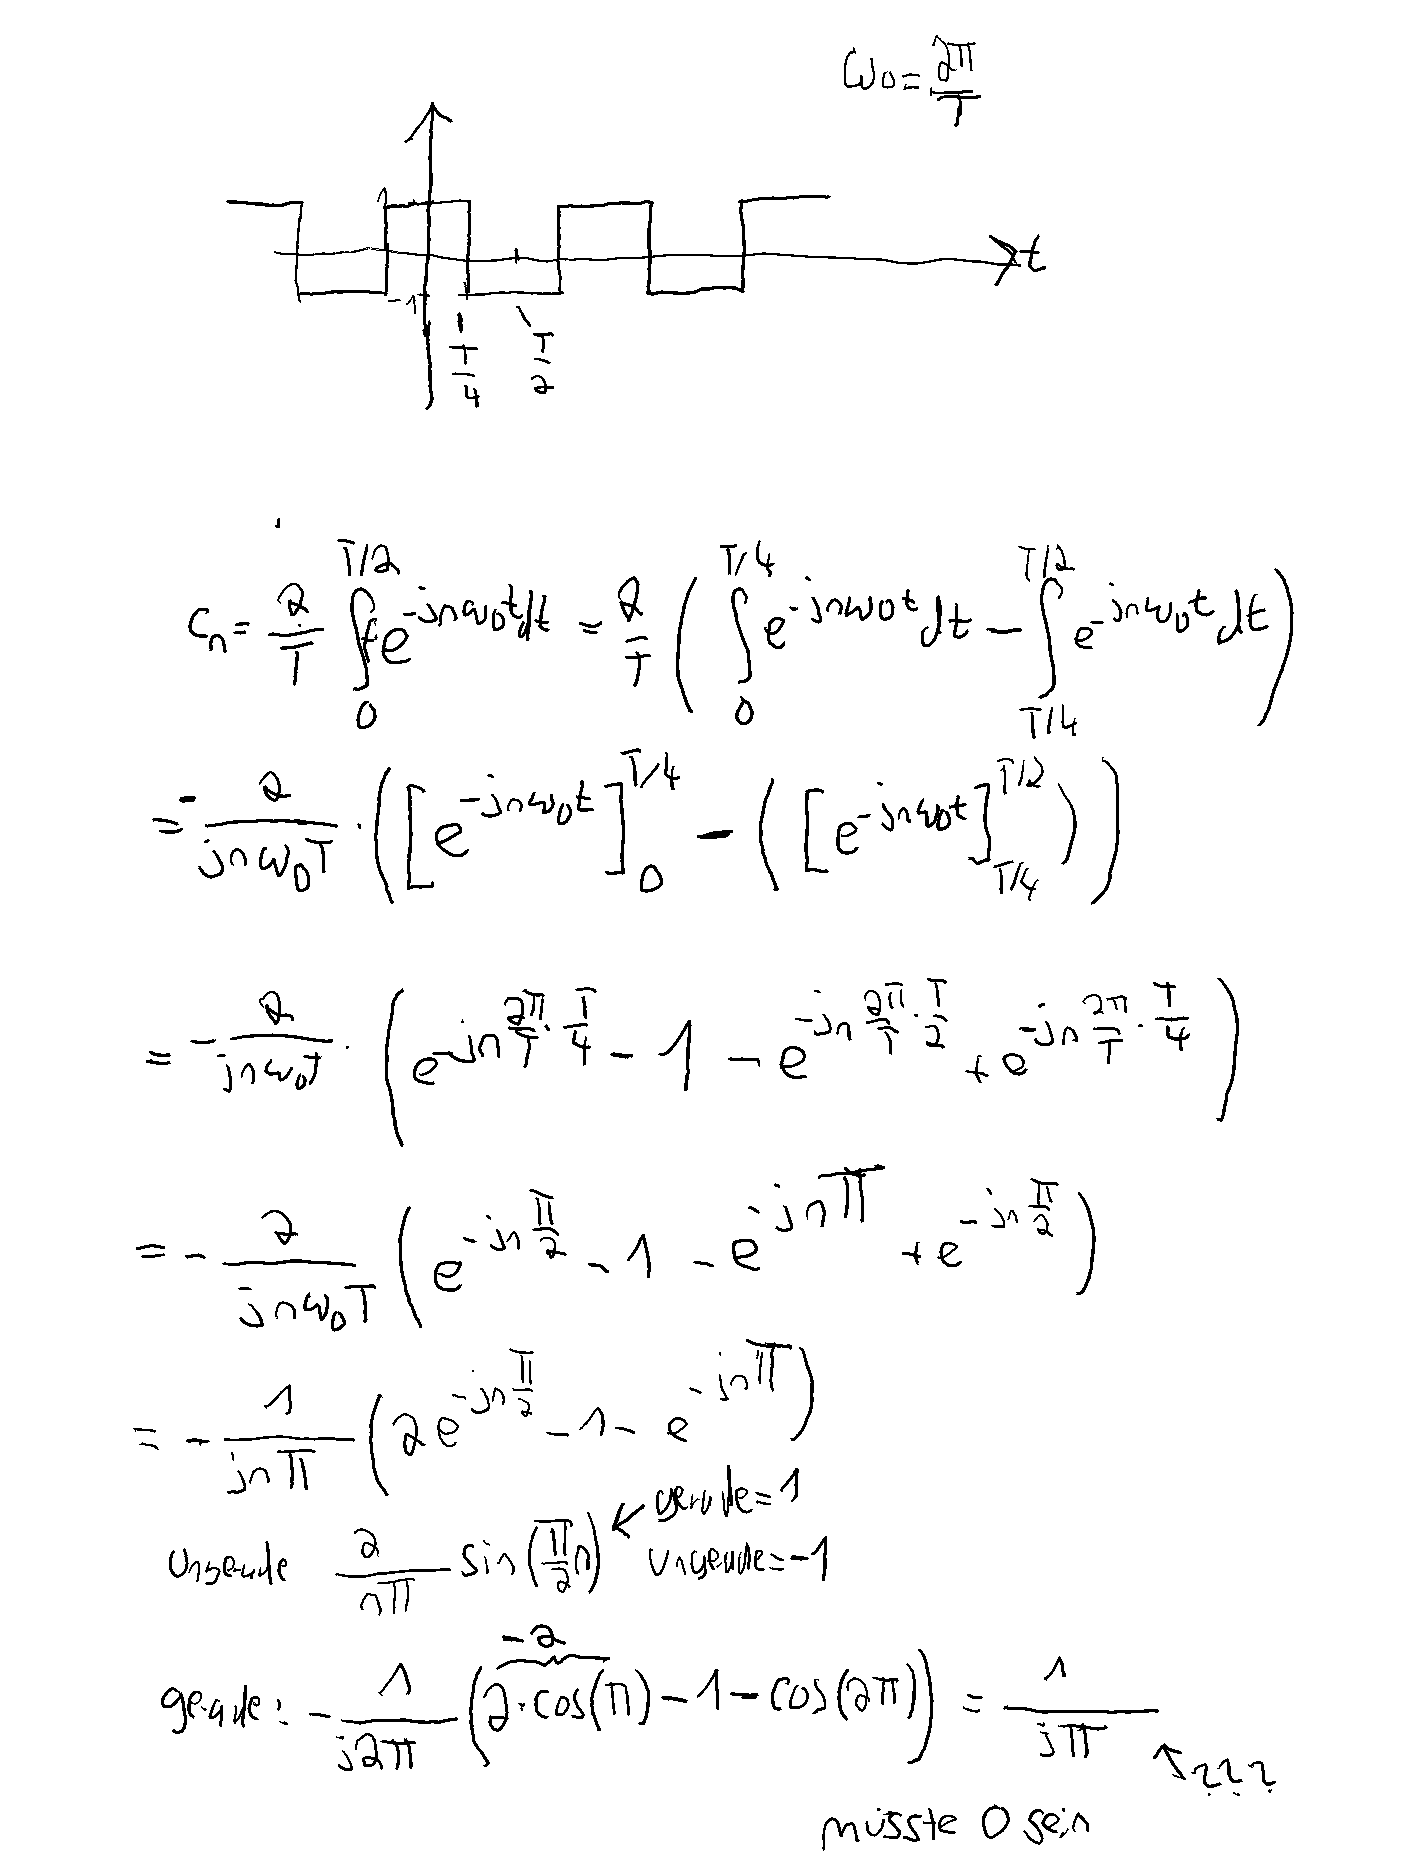 ω₀ = 2π/T
1
-1
t
T/4 T/2
cₙ = 2/T ∫₀^{T/2} f e^{-jnω₀t} dt = 2/T ( ∫₀^{T/4} e^{-jnω₀t} dt - ∫_{T/4}^{T/2} e^{-jnω₀t} dt )
= - 2/(jnω₀T) · ( [e^{-jnω₀t}]₀^{T/4} - ( [e^{-jnω₀t}]_{T/4}^{T/2} ) )
= - 2/(jnω₀T) · ( e^{-jn 2π/T · T/4} - 1 - e^{-jn 2π/T · T/2} + e^{-jn 2π/T · T/4} )
= - 2/(jnω₀T) ( e^{-jn π/2} - 1 - e^{-jnπ} + e^{-jn π/2} )
= - 1/(jnπ) ( 2e^{-jn π/2} - 1 - e^{-jnπ} )
gerade = 1
ungerade 2/(nπ) sin(π/2 n) ungerade = -1
-2
gerade: - 1/(j2π) ( 2·cos(π) - 1 - cos(2π) ) = 1/(jπ)
???
müsste 0 sein